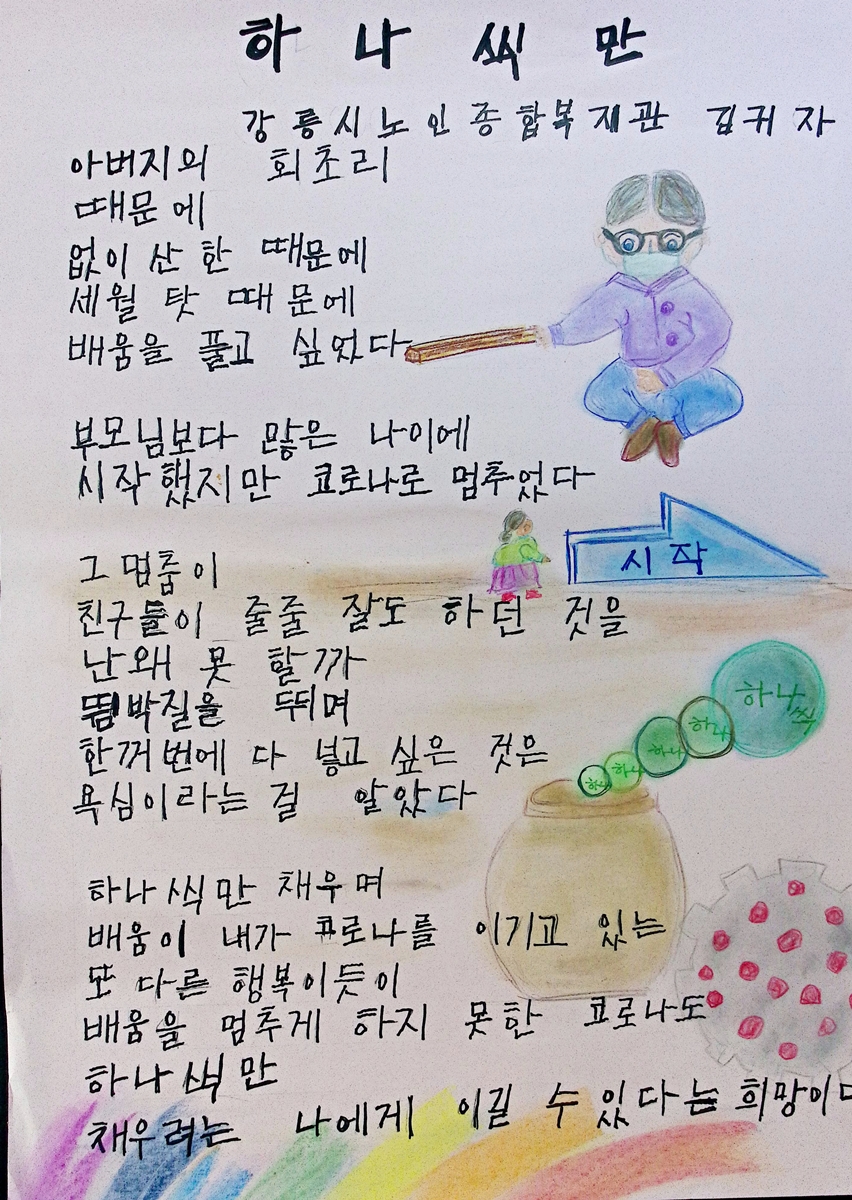 하나씩만
강릉시노인종합복지관 김귀자
아버지의 회초리
때문에
없이 산 한 때문에
세월 탓 때문에
배움을 풀고 싶었다
부모님보다 많은 나이에
시작했지만 코로나로 멈추었다
시작
그 멈춤이
친구들이 줄줄 잘도 하던 것을
난 왜 못 할까
뜀박질을 뛰며
한꺼번에 다 넣고 싶은 것은
욕심이라는 걸 알았다
하나씩
하나
하나
하나
하나
하나씩만 채우며
배움이 내가 코로나를 이기고 있는
또 다른 행복이듯이
배움을 멈추게 하지 못한 코로나도
하나씩만
채우려는 나에게 이길 수 있다는 희망이다